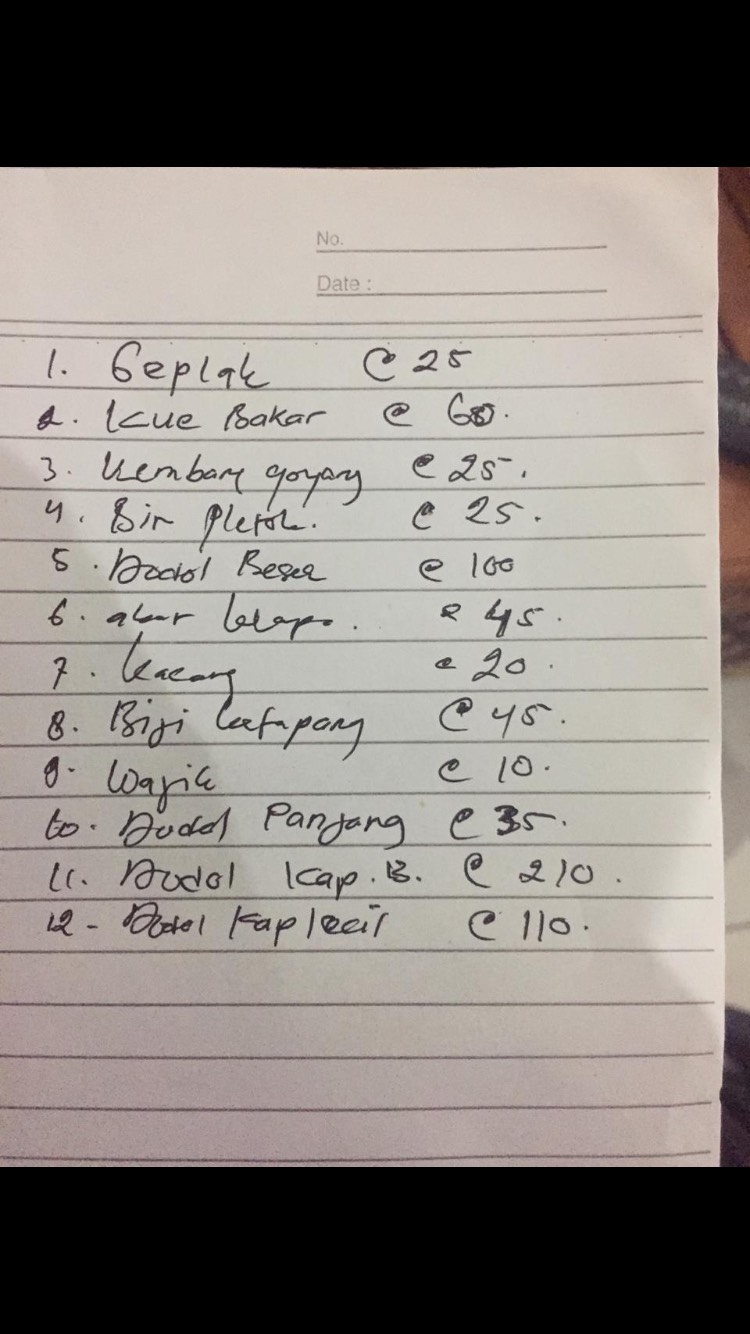 No.
Date :
1. Geplak @ 25
2. Kue Bakar @ 60.
3. Kembang goyang @ 25.
4. Bir Pletok. @ 25.
5. Dodol Besar @ 100
6. akar kelapa. @ 45.
7. Kacang @ 20.
8. Biji ketapang @ 45.
9. Wajik @ 10.
10. Dodol Panjang @ 35.
11. Dodol Kap. B. @ 210.
12 - Dodol Kap kecil @ 110.